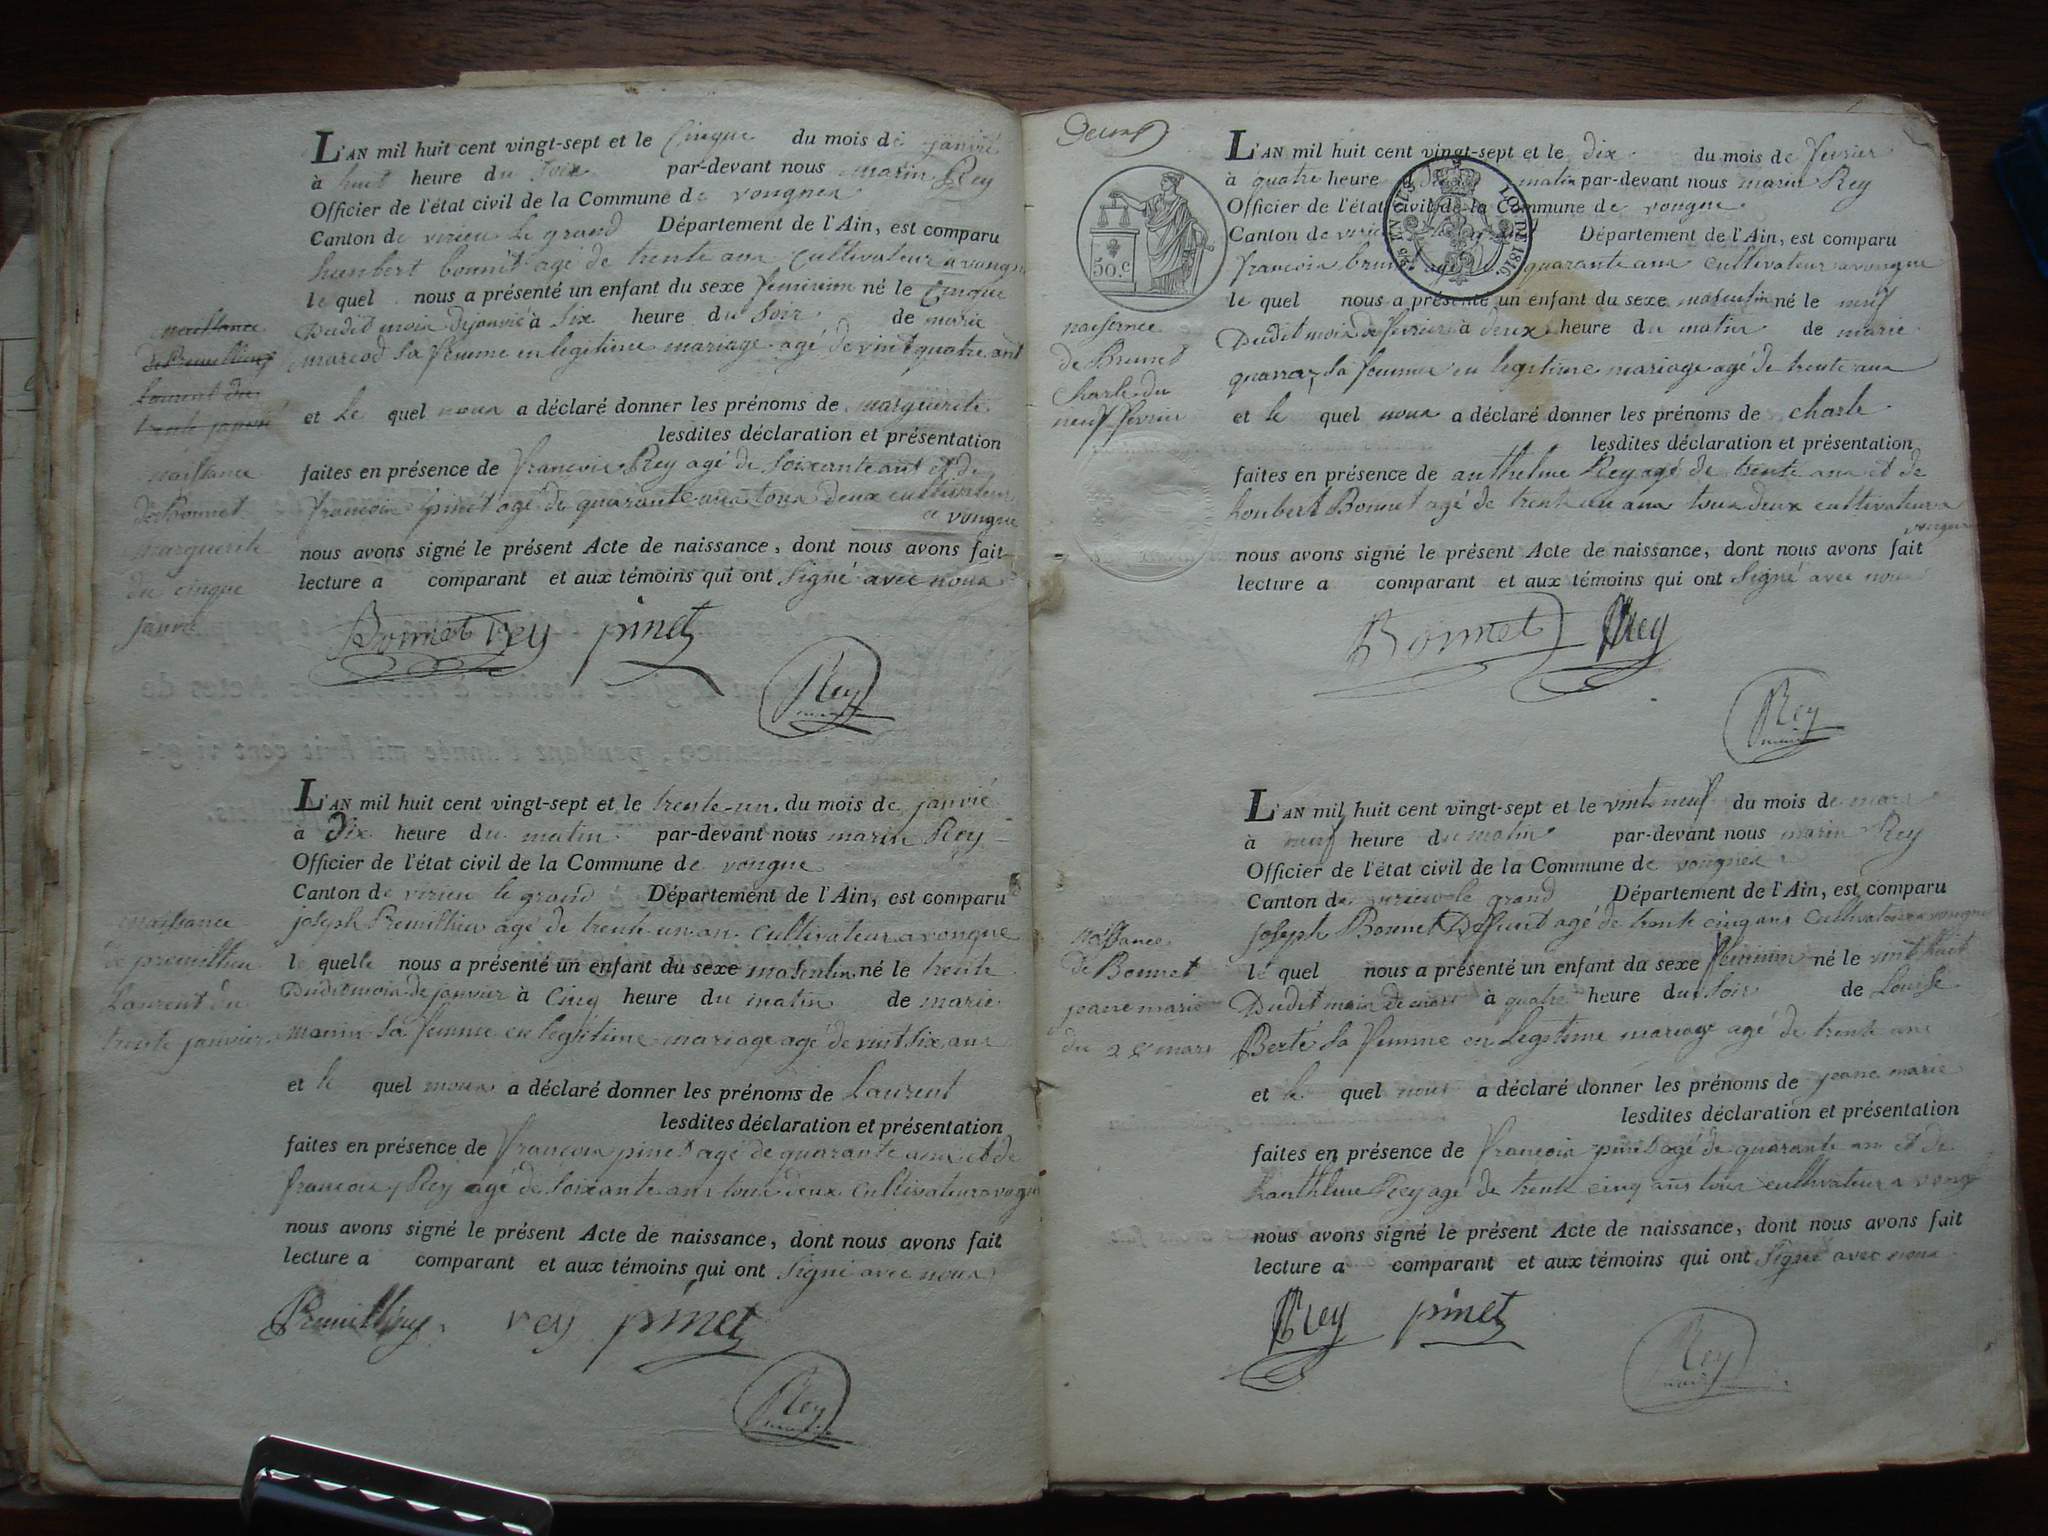 L'AN mil huit cent vingt-sept et le Cinque du mois de janvié
à huit heure du soir par-devant nous marin Rey
Officier de l'état civil de la Commune de vongnes
Canton de virieu le grand Département de l'Ain, est comparu
humbert bonnet agé de trente ans Cultivateur a vongne
le quel nous a présenté un enfant du sexe feminim né le Cinque
Dudit mois de janvié à six heure du soir de marie
sa femme en legitime mariage agé de vint quatre ans
et le quel nous a déclaré donner les prénoms de marguerite
lesdites déclaration et présentation
faites en présence de francois Rey agé de soixante ans et de
francois pinet agé de quarante ans tous deux cultivateur
a vongne
nous avons signé le présent Acte de naissance, dont nous avons fait
lecture a comparant et aux témoins qui ont signé avec nous
Bonnet rey pinet
Rey
naissance
de Premillieu
Laurent du
trente janvié
naissance
de Bonnet
marguerite
du cinque
janvié
L'AN mil huit cent vingt-sept et le trente-un du mois de janvié
à Dix heure du matin par-devant nous marin Rey
Officier de l'état civil de la Commune de vongne
Canton de virieu le grand Département de l'Ain, est comparu
joseph Premillieu agé de trente un an cultivateur a vongne
le quelle nous a présenté un enfant du sexe masculin né le trente
Dudit mois de janvier à Cinq heure du matin de marie
sa femme en legitime mariage agé de vint six ans
et le quel nous a déclaré donner les prénoms de Laurent
lesdites déclaration et présentation
faites en présence de francois pinet agé de quarante ans et de
francois Rey agé de soixante ans tous deux cultivateur a vongne
nous avons signé le présent Acte de naissance, dont nous avons fait
lecture a comparant et aux témoins qui ont signé avec nous
Premillieu rey pinet
Rey
naissance
de premillieu
Laurent du
trente janvier
50.c
LOI DE 1816
naisence
de Brunet
Charle du
neuf fevrier
L'AN mil huit cent vingt-sept et le dix du mois de fevrier
à quatre heure du matin par-devant nous marin Rey
Officier de l'état civil de la Commune de vongne
Canton de virieu le grand Département de l'Ain, est comparu
francois brunet agé de quarante ans cultivateur a vongne
le quel nous a présenté un enfant du sexe masculin né le neuf
Dudit mois de fevrier à deux heure du matin de marie
sa femme en legitime mariage agé de trente ans
et le quel nous a déclaré donner les prénoms de charle
lesdites déclaration et présentation
faites en présence de anthelme Rey agé de trente ans et de
houbert Bonnet agé de trente un ans tous deux cultivateur a
vongne
nous avons signé le présent Acte de naissance, dont nous avons fait
lecture a comparant et aux témoins qui ont signé avec nous
Bonnet Rey
Rey
L'AN mil huit cent vingt-sept et le vint neuf du mois de mars
à neuf heure du matin par-devant nous marin Rey
Officier de l'état civil de la Commune de vongnes
Canton de virieu le grand Département de l'Ain, est comparu
joseph Bonnet Defunt agé de trente cinq ans Cultivateur a vongne
le quel nous a présenté un enfant du sexe feminin né le vint huit
Dudit mois de mars à quatre heure du soir de Louise
Berte sa femme en legitime mariage agé de trente ans
et le quel nous a déclaré donner les prénoms de jeane marie
lesdites déclaration et présentation
faites en présence de francois pinet agé de quarante an et de
hanthlme Rey agé de trente cinq ans tous cultivateur a vong
nous avons signé le présent Acte de naissance, dont nous avons fait
lecture a comparant et aux témoins qui ont signé avec nous
Rey pinet
Rey
naissance
de Bonnet
jeane marie
du 28 mars